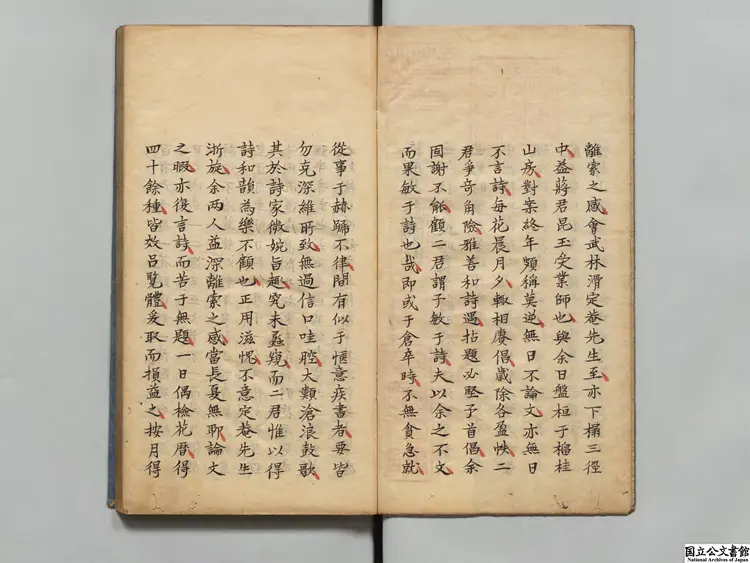 離索之感會武林滑定菴先生至亦下榻三徑
中益蔣君昆玉受業師也與余日盤桓于榴桂
山房對案終年頗稱莫逆無日不論文亦無日
不言詩每花晨月夕輒相賡倡歲除各盈帙二
君爭奇角險雅善和詩遇拈題必堅予首倡余
固謝不能顧二君謂子敏于詩夫以余之不文
而果敏于詩也哉即或于倉卒時不無貪急就
從事于赫蹏不律間有似于愜意疾書者要皆
勿克深維所致無過信口哇腔大類滄浪鼓歌
其於詩家微婉旨趣究未蠡窺而二君惟以得
詩和韻為樂不顧也正用滋愧不意定菴先生
浙旋余兩人益深離索之感當長夏無聊論文
之暇亦復言詩而苦于無題一日偶檢花曆得
四十餘種皆效呂覽體爰取而損益之按月得
国立公文書館
National Archives of Japan